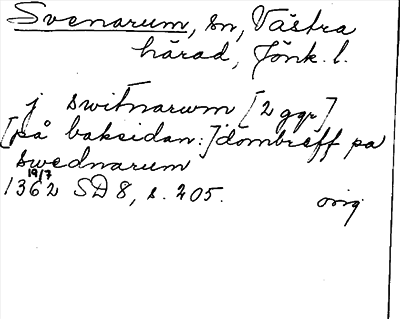 Svenarum, sn, Västra
härad, Jönk. l.
j switnarwm [2 ggr]
[på baksidan:] dombreff pa
swednarum
19/7
1362 SD 8, s. 205.
orig